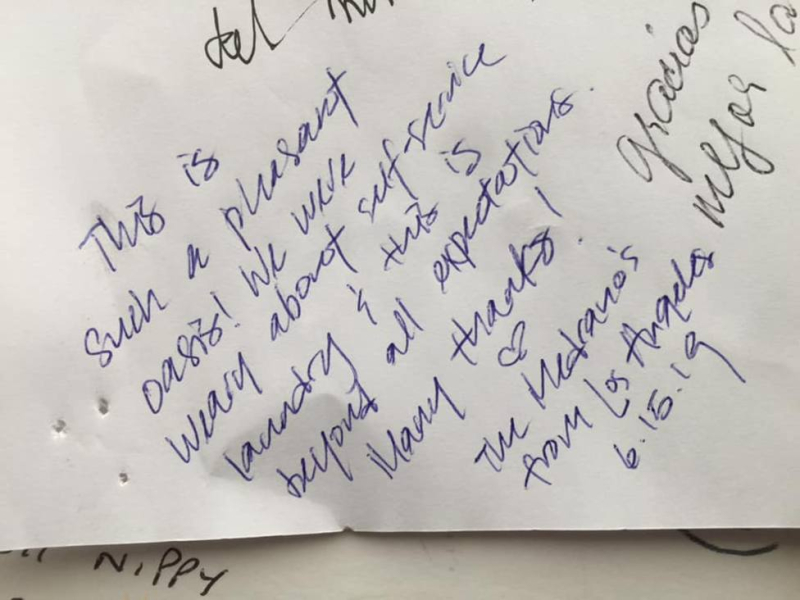 This is
such a pleasant
oasis! We were
weary about self-service
laundry & this is
beyond all expectations.
Many thanks!
The Medrano's
from Los Angeles
6.15.19
gracias
mejor
NIPPY